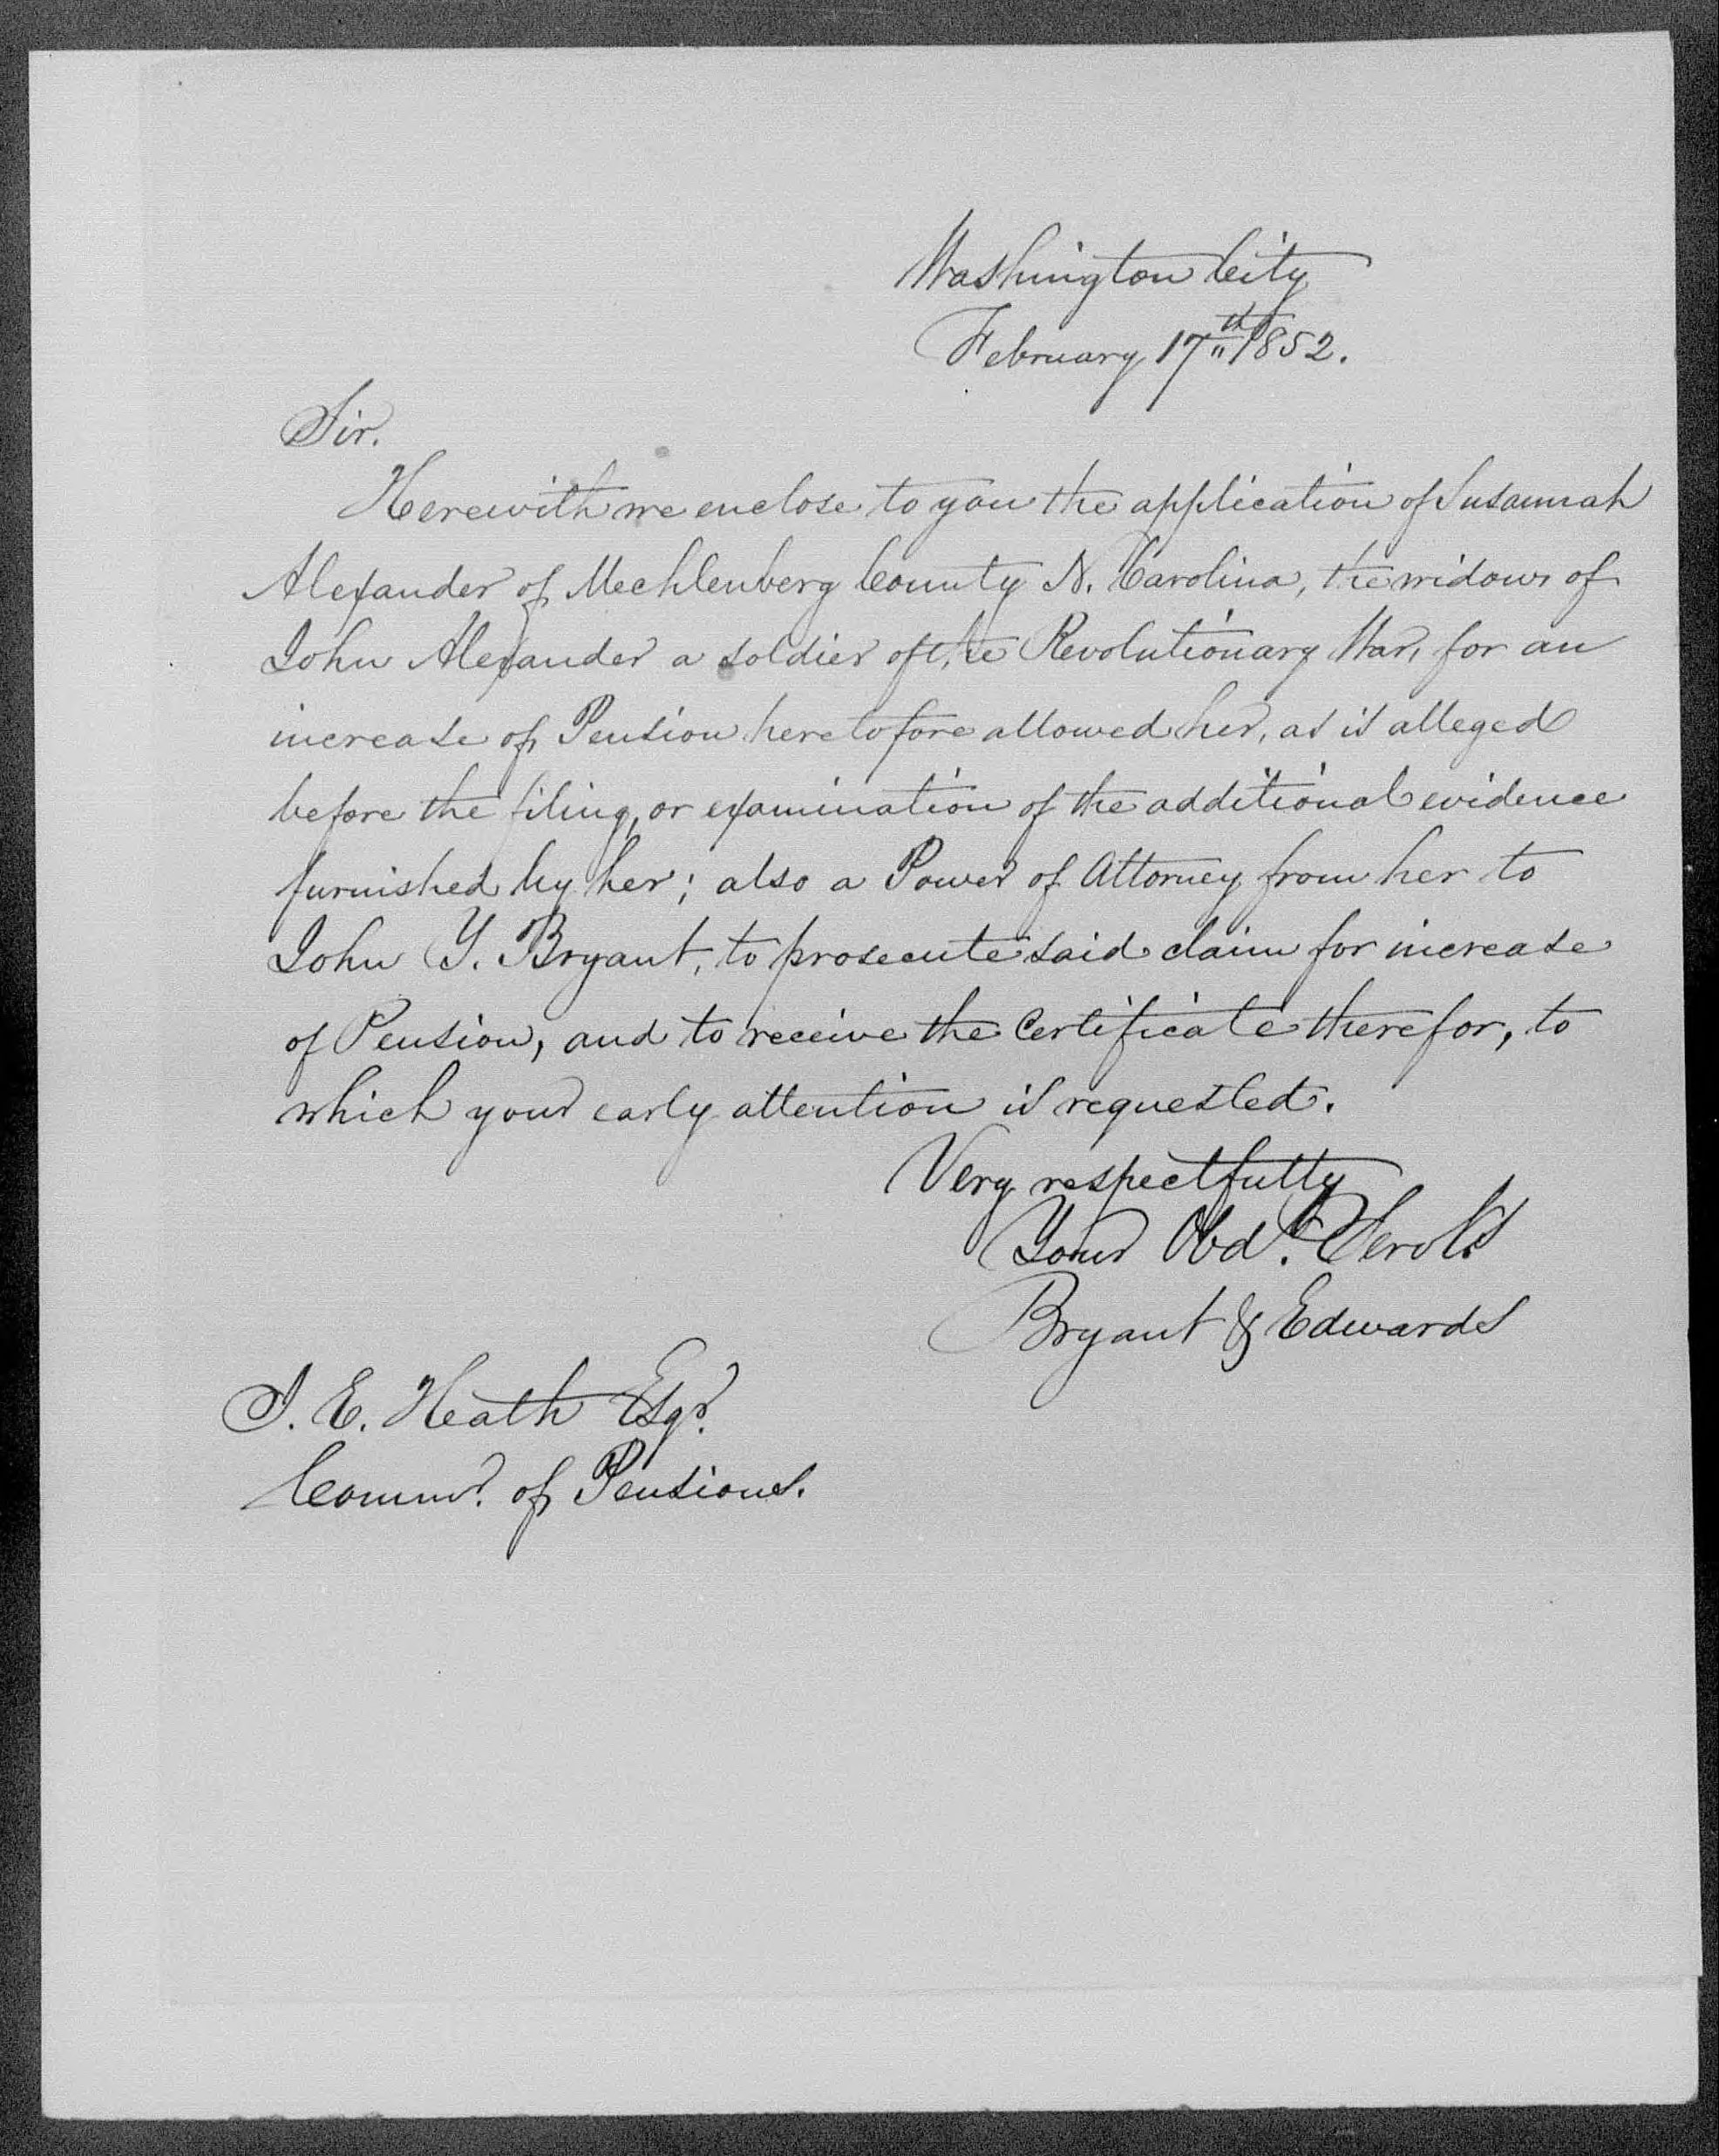 Washington City
February 17th 1852.
Sir.
Herewith we enclose to you the application of Susannah
Alexander of Mechlenberg County N. Carolina, the widow of
John Alexander a soldier of the Revolutionary War, for an
increase of Pension heretofore allowed her, as is alleged
before the filing, or examination of the additional evidence
furnished by her; also a Power of Attorney from her to
John Y. Bryant, to prosecute said claim for increase
of Pension, and to receive the Certificate therefor, to
which your early attention is requested.
Very respectfully
Your Obdt. Servts
Bryant & Edwards
J. E. Heath Esqr.
Commr. of Pensions.